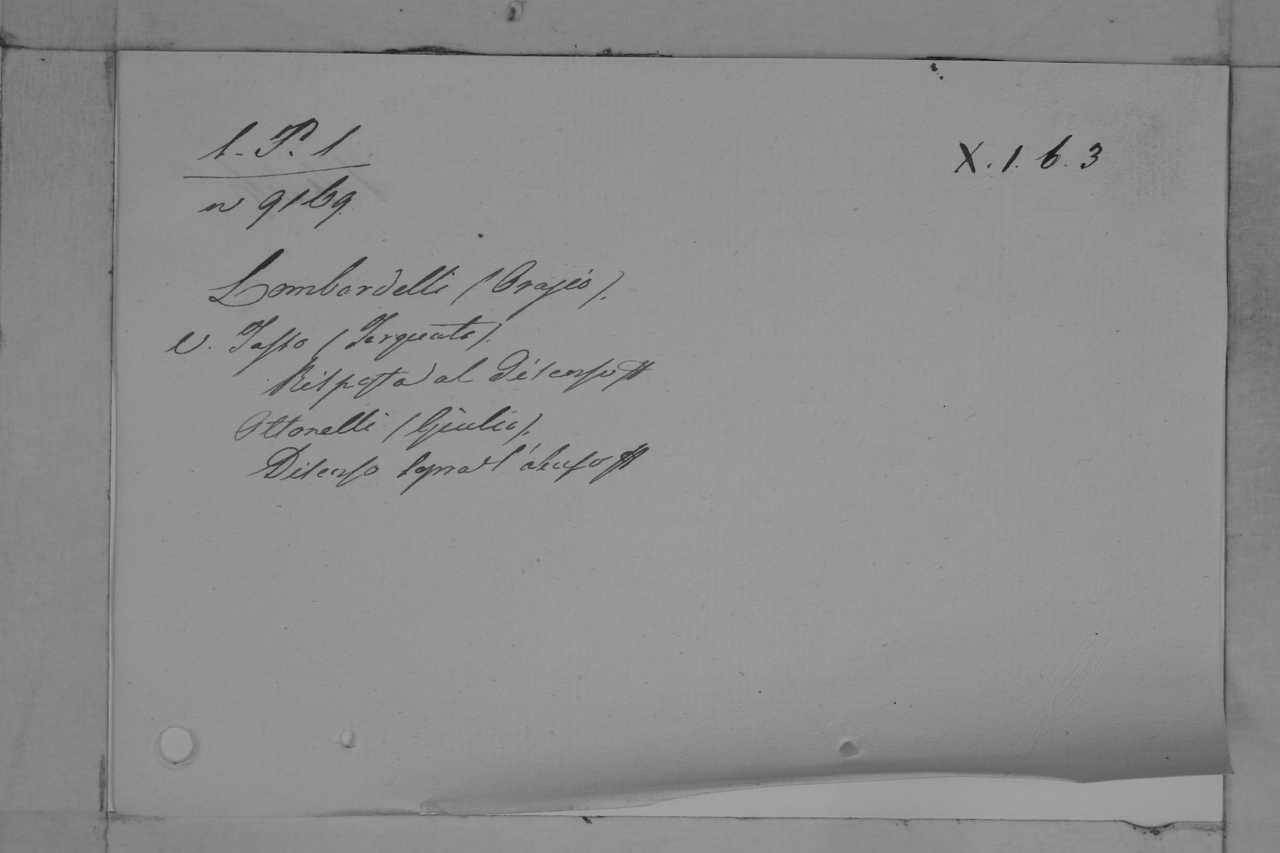 b. P. 1
n 9169
X. 1. 6. 3
Lombardelli (Orazio).
v. Tasso (Torquato).
Risposta al Discorso #
Ottonelli (Giulio).
Discorso sopra l'abuso #